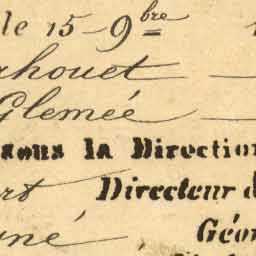 le 15 9bre
ahouet
Glemeé
sous la Direction
rt Directeur d
né Géom